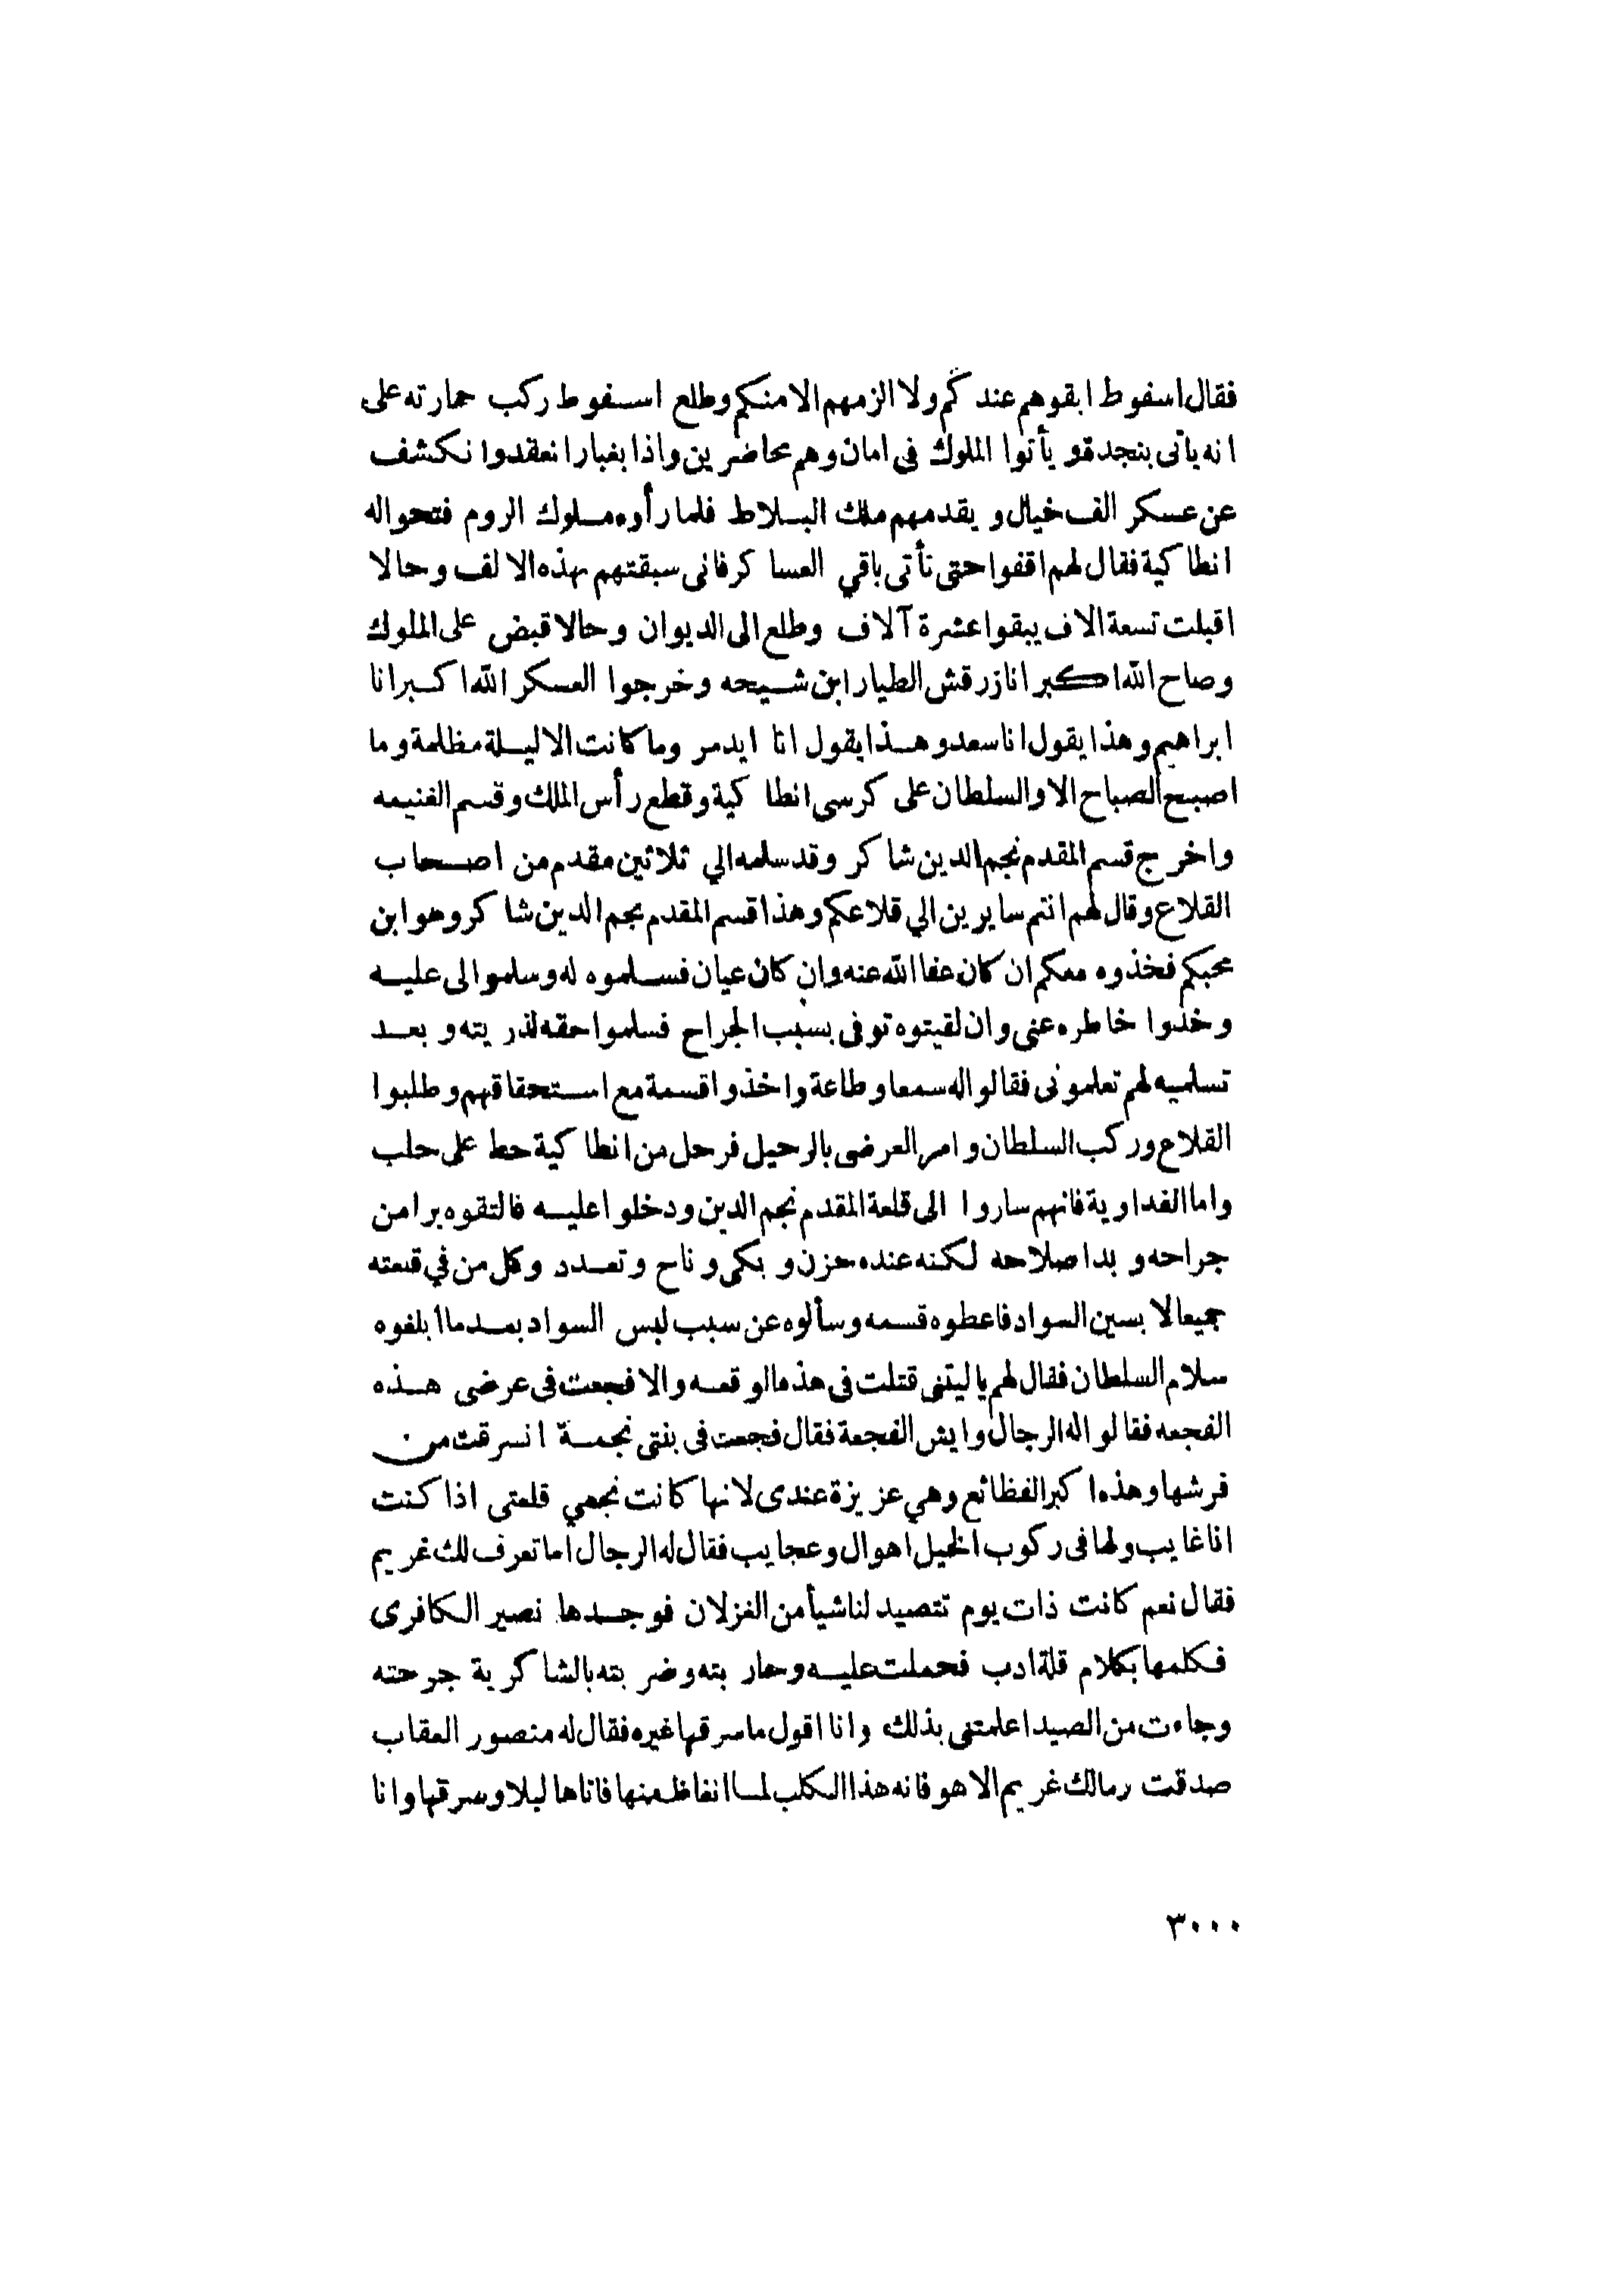 فقال اسفوط ابقوهم عندكم ولا الزمهم الا منكم وطلع اسفوط ركب حمارته على
انه يأتى بنجدة و يأتوا الملوك في امان وهم محاضرين واذا بغبار انعقدوا نكشف
عن عسكر الف خيال و يقدمهم ملك البلاط فلما رأوه ملوك الروم فتحواله
انطاكية فقال لهم اقفوا حتى تأتى باقي العساكر فانى سبقتهم بهذه الالف وحالا
اقبلت تسعة الاف يبقوا عشرة آلاف وطلع الى الديوان وحالا قبض على الملوك
وصاح الله اكبر انا زرقش الطيار ابن شيحه وخرجوا العسكر الله اكبر انا
ابراهيم وهذا يقول انا سعد وهذا يقول انا ايدمر وما كانت الاليلة مظلمة وما
اصبح الصباح الا والسلطان على كرسى انطاكية وقطع رأس الملك وقسم الغنيمه
واخرج قسم المقدم نجم الدين شاكر وقد سلمه الي ثلاثين مقدم من اصحاب
القلاع وقال لهم انتم سايرين الي قلاعكم وهذا قسم المقدم نجم الدين شاكر وهو ابن
محبكم فخذوه معكم ان كان عفا الله عنه وان كان عيان فسلموه له وسلموا لى عليه
وخذوا خاطره عنى وان لقيتوه توفى بسبب الجراح فسلموا حقه لذريته و بعد
تسلميه لهم تعلمونى فقالواله سمعا وطاعة واخذوا قسمة مع استحقاقهم وطلبوا
القلاع وركب السلطان وامر العرضى بالرحيل فرحل من انطاكية حط على حلب
واما الفداوية فانهم ساروا الى قلعة المقدم نجم الدين ودخلوا عليه فالتقوه برا من
جراحه و بدا صلاحه لكنه عنده حزن و بكى وناح وتعدد وكل من في قلعته
جميعا لابسين السواد فاعطوه قسمه وسألوه عن سبب لبس السواد بعدما ابلغوه
سلام السلطان فقال لهم يا ليتنى قتلت فى هذه الوقعه والا فجعت فى عرضى هذه
الفجعه فقالواله الرجال وايش الفجعة فقال فجعت فى بنتى نجمة انسرقت من
فرشها وهذه اكبر الفظائع وهي عزيزة عندى لانها كانت تحمي قلعتى اذا كنت
انا غايب ولها فى ركوب الخيل اهوال وعجايب فقال له الرجال اما تعرف لك غريم
فقال نعم كانت ذات يوم تتصيد لنا شيأ من الغزلان فوجدها نصير الكافرى
فكلمها بكلام قلة ادب فحملت عليه وحار بته وضر بته بالشاكرية جرحته
وجاءت من الصيد اعلمتنى بذلك وانا اقول ما سرقها غيره فقال له منصور العقاب
صدقت ومالك غريم الا هو فانه هذا الكلب لما انغاظ منها فاتاها ليلا وسرقها وانا
٣٠٠٠